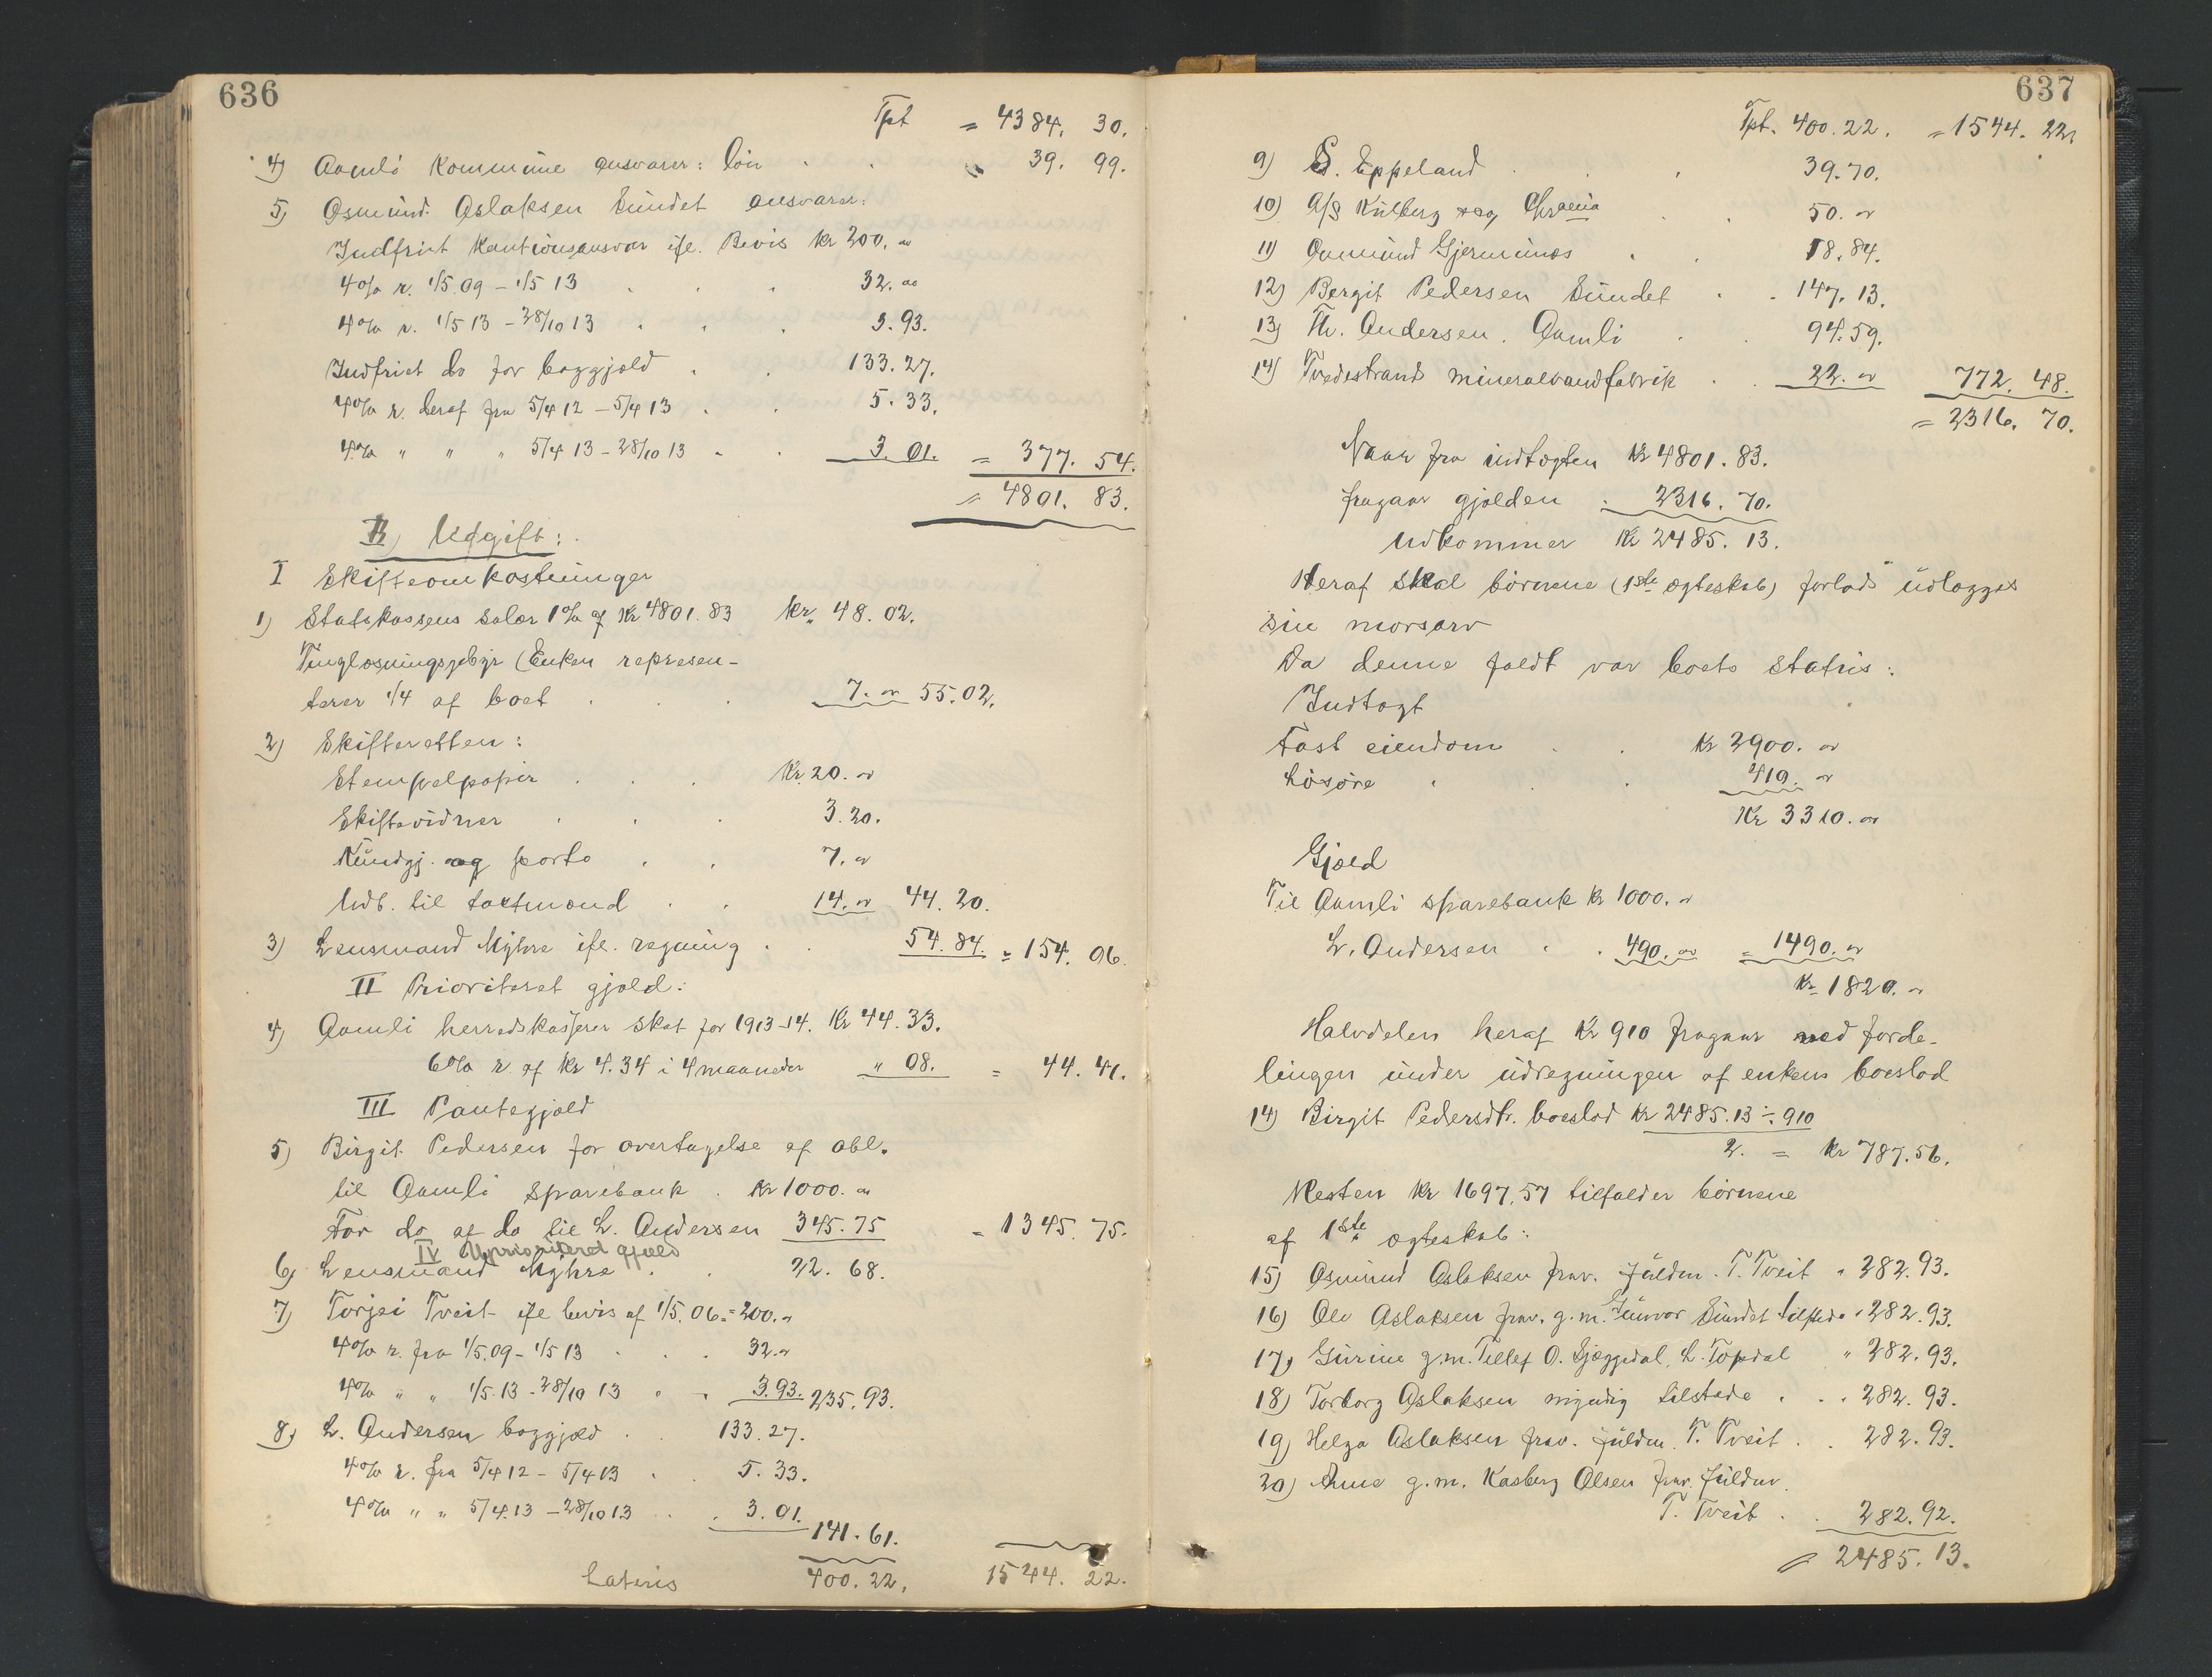 636
Tpt = 4384. 30.
4) Aamli Kommune ansvarer: løn . . " 39. 99.
5) Osmund Aslaksen Sundet ansvarer:
Indfriet Kautionsansvar ifl. Bevis kr 200. "
4% r. 1/5.09 - 1/5 13 . . . 32. "
4% r. 1/5 13 - 28/10 13 . . . 3.93.
Indfriet do for boggjæld . . 133.27.
4% r. deraf fra 5/4 12 - 5/4 13 . . 5.33.
4% " " " 5/4 13 - 28/10 13 . . 3.01. = 377. 54.
= 4801. 83.
B) Udgift:
I Skifteomkostninger
1) Statskassens salær 1% af Kr 4801.83 kr. 48.02.
Tinglæsningsgebyr (Enken represen-
terer 1/4 af boet . . . 7. " 55.02.
2) Skifteretten:
Stempelpapir . . . Kr 20. "
Skiftevidner . . . 3.20.
Kundgj. og porto . . 7. "
Udb. til takstmænd . . 14. " 44. 20.
3) Lensmand Myhre ifl. regning . . 54.84. = 154. 06.
II Prioriteret gjæld:
4) Aamli herredskasserer skat for 1913-14. Kr 44.33.
6% r. af kr 4.34 i 4 maaneder " 08. = 44. 41.
III Pantegjæld
5) Birgit Pedersen for overtagelse af obl.
til Aamli sparebank . Kr 1000. "
For do af do til L. Andersen 345.75 = 1345. 75.
IV Uprioriteret gjæld
6) Lensmand Myhre . . 22. 68.
7) Torjei Tveit ifl bevis af 1/5.06 = 200. "
4% r. fra 1/5.09 - 1/5 13 . . . 32. "
4% " " 1/5.13 - 28/10 13 . . 3.93. 235.93.
8) L. Andersen boggjæld . . 133.27.
4% r. fra 5/4 12 - 5/4 13 . . 5.33.
4% " " 5/4.13 - 28/10 13 . . 3.01. 141.61.
Lateris 400.22. 1544. 22.
637
Tpt. 400.22. = 1544. 22.
9) S. Eppeland . . . 39.70.
10) A/S Kulberg & Chrania . . 50. "
11) Aamund Gjermunds . . 18.84.
12) Bergit Pedersen Sundet . . 147.13.
13) Th. Andersen. Aamli . . 94.59.
14) Tvedestrand mineralvandfabrik . . 22. " 772. 48.
= 2316. 70.
Naar fra indtægten Kr 4801.83.
fragaar gjælden . 2316.70.
Udkommer Kr 2485. 13.
Heraf skal børnene (1ste ægteskab) forlods udlægges
sin morsarv
Da denne faldt var boets status:
Indtægt
Fast eiendom . . Kr 2900. "
Løsøre . . 410. "
Kr 3310. "
Gjæld
Til Aamli sparebank Kr 1000. "
L. Andersen . . 490. " = 1490. "
Kr 1820. "
Halvdelen heraf Kr 910 fragaar ved forde-
lingen under udregningen af enkens boeslod
14) Birgit Pedersdtr. boeslod Kr 2485.13 ÷ 910
2. = Kr 787.56.
Resten Kr 1697.57 tilfalder børnene
af 1ste ægteskab:
15) Osmund Aslaksen frav. fuldm. T. Tveit " 282.93.
16) Olv Aslaksen frav. g.m. Gunvor Sundet tilstede " 282.93.
17) Gurine g.m. Tellef O. Gjæggedal, L. Topdal " 282.93.
18) Torborg Aslaksen myndig tilstede . . . 282.93.
19) Helga Aslaksen frav. fuldm. T. Tveit . . 282.93.
20) Anne g.m. Kasberg Olsen frav. fuldm.
T. Tveit . . 282.92.
= 2485.13.